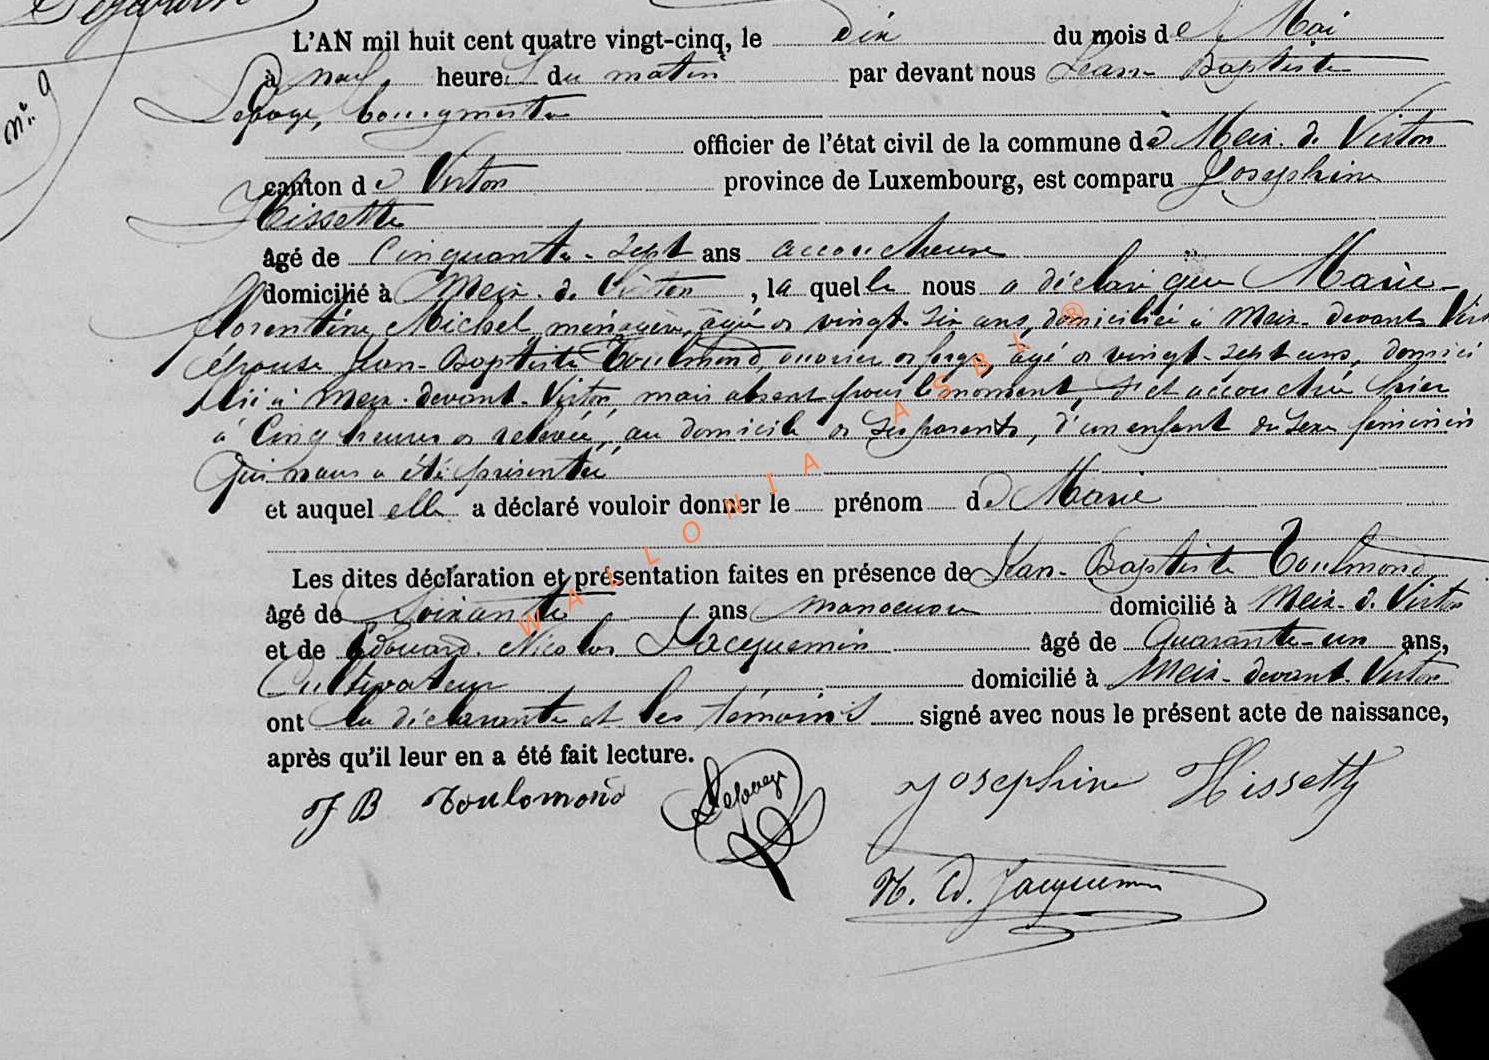 N° 9
L'AN mil huit cent quatre vingt-cinq, le dix du mois de Mai
à neuf heures du matin par devant nous Jean-Baptiste
Lepage, bourgmestre
officier de l'état civil de la commune de Meix-d. Virton
canton de Virton province de Luxembourg, est comparu Joséphine
Hissette
âgé de Cinquante-sept ans accoucheuse
domicilié à Meix-d. Virton, laquelle nous a déclaré que Marie-
florentine Michel, ménagère, âgée de vingt-six ans, domiciliée à Meix-devant-Virt
épouse Jean-Baptiste Toulmond, ouvrier de forge, âgé de vingt-sept ans, domici
lié à Meix-devant-Virton, mais absent pour le moment, est accouchée hier
à Cinq heures de relevée, au domicile de ses parents, d'un enfant du sexe féminin
qui nous a été présentée
et auquel elle a déclaré vouloir donner le prénom de Marie
Les dites déclaration et présentation faites en présence de Jean-Baptiste Toulmond
âgé de Soixante ans manoeuvre domicilié à Meix-d. Virton
et de Edouard Nicolas Jacquemin âgé de Quarante-un ans,
Cultivateur domicilié à Meix-devant-Virton
ont la déclarante et les témoins signé avec nous le présent acte de naissance,
après qu'il leur en a été fait lecture.
J B Toulomond Lepage Joséphine Hissette
N. Ed. Jacquemin
WALLONIA ASBL ®